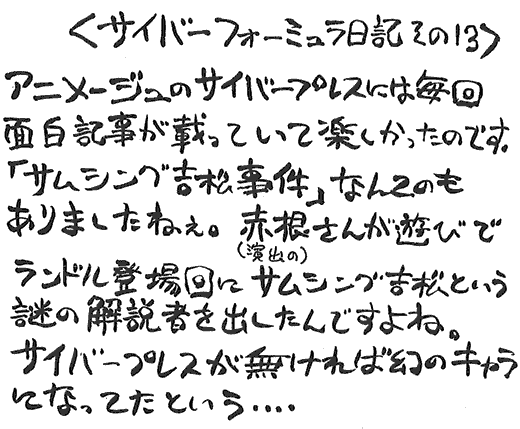 <サイバーフォーミュラ日記その13>
アニメージュのサイバープレスには毎回
面白記事が載っていて楽しかったのです。
「サムシング吉松事件」なんてのも
ありましたねぇ。赤根さんが遊びで
(演出の)
ランドル登場回にサムシング吉松という
謎の解説者を出したんですよね。
サイバープレスが無ければ幻のキャラ
になってたという‥‥